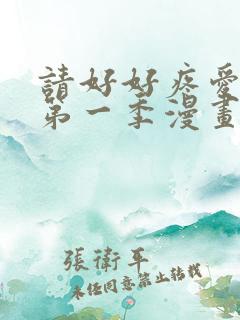 請好好疼愛
第一季漫畫
張衛平
未經同意禁止轉載